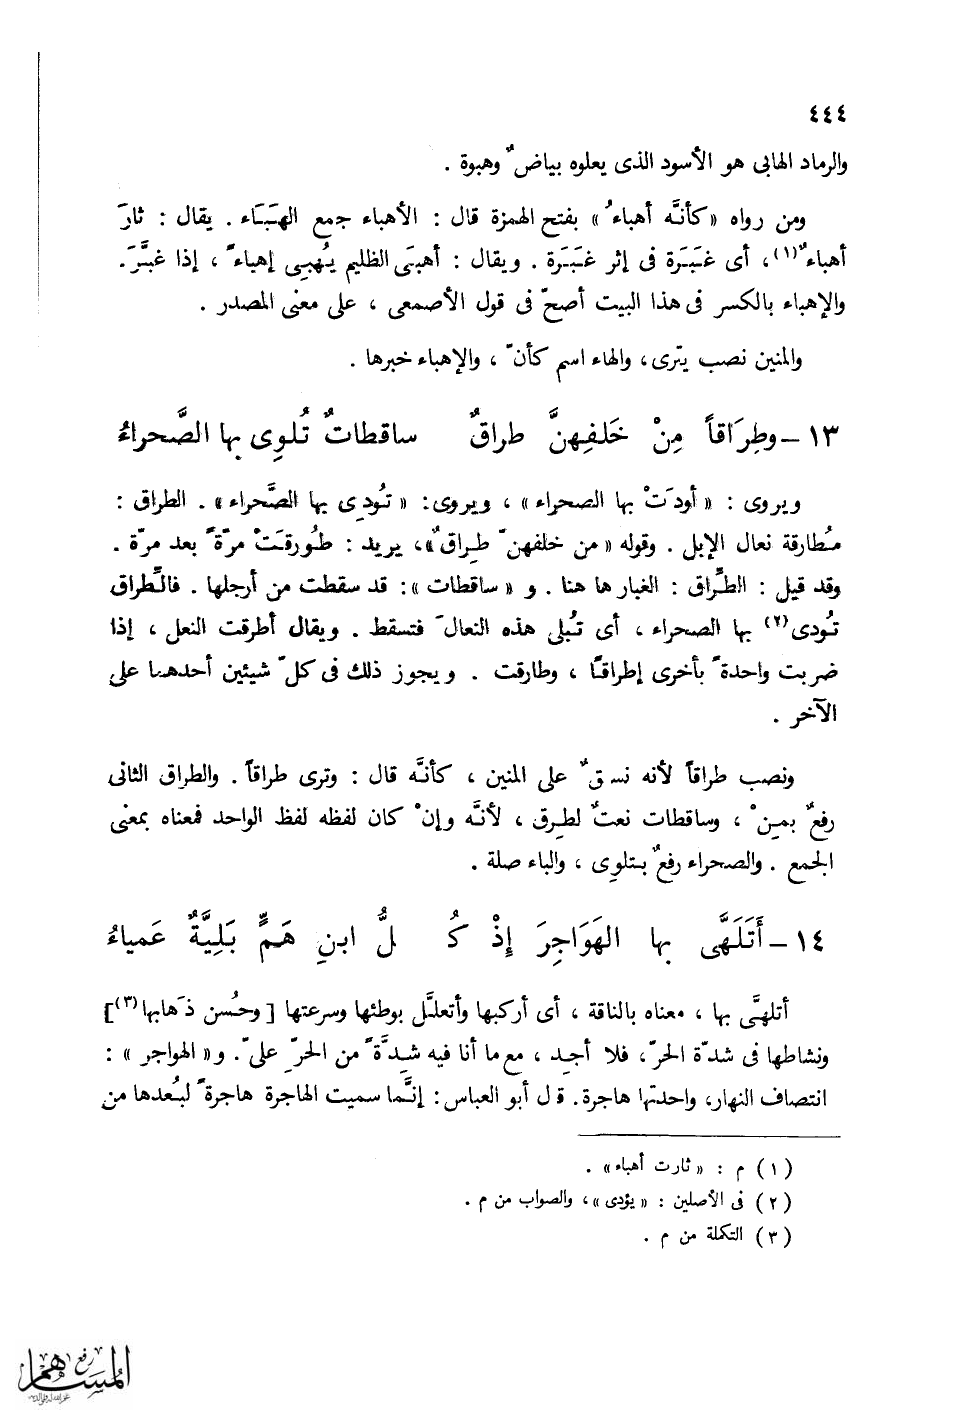 ٤٤٤
والرماد الهابى هو الأسود الذى يعلوه بياضٌ وهبوة .
ومن رواه «كأنَّه أهباءُ» بفتح الهمزة قال : الأهباء جمع الهَبَاء . يقال : ثارَ
أهباءٌ(١)، أى غَبَرَة فى إثر غَبَرَة . ويقال : أهبَى الظليم يُهبِى إهباءً ، إذا غبَّرَ.
والإهباء بالكسر فى هذا البيت أصحّ فى قول الأصمعى ، على معنى المصدر .
والمنين نصب بترى، والهاء اسم كأنّ ، والإهباء خبرها .
١٣ – وطِرَاقاً مِنْ خَلفِهنَّ طراقٌ ساقطاتٌ تُلوِى بها الصَّحراءُ
ويروى : « أودَتْ بها الصحراء » ، ويروى: « تُودِى بها الصَّحراء » . الطراق :
مُطارقة نعال الإبل . وقوله « من خلفهنّ طِراقٌ»، يريد : طُورقَتْ مرّةً بعد مرّة .
وقد قيل : الطِّراق : الغبار ها هنا . و « ساقطات »: قد سقطت من أرجلها . فالطِّراق
تُودى(٢) بها الصحراء ، أى تُبلى هذه النعالَ فتسقط . ويقال أطرقت النعل ، إذا
ضربت واحدةً بأخرى إطراقًا ، وطارقت . ويجوز ذلك فى كلّ شيئين أحدهما على
الآخر .
ونصب طراقاً لأنه نسقٌ على المنين ، كأنَّه قال : وترى طراقاً . والطراق الثانى
رفعٌ بمِنْ ، وساقطات نعتٌ لطرق ، لأنَّه وإنْ كان لفظه لفظ الواحد فمعناه بمعنى
الجمع . والصحراء رفعٌ بتلوِى ، والباء صلة .
١٤ – أَتَلَهَّى بها الهَوَاجِرَ إِذْ كُـ ـلُّ ابنِ هَمٍّ بَلِيَّةٌ عَمياءُ
أتلهَّى بها ، معناه بالناقة ، أى أركبها وأتعلَّل بوطئها وسرعتها [وحُسن ذَهابها(٣)]
ونشاطها فى شدّة الحرّ، فلا أجِد ، مع ما أنا فيه شِدَّةً من الحرِّ علىّ. و« الهواجر » :
انتصاف النهار، واحدتها هاجرة. قال أبو العباس: إنَّما سميت الهاجرة هاجرةً لبُعدها من
(١) م : « ثارت أهباء» .
(٢) فى الأصلين : « يؤدى »، والصواب من م .
(٣) التكملة من م .
رفع
المساهم